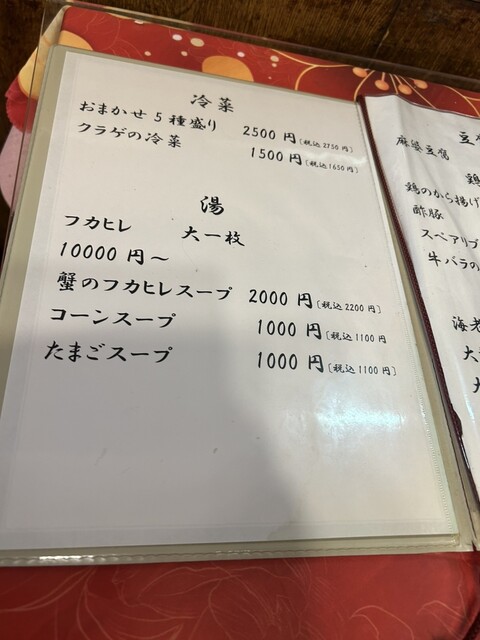 冷菜
おまかせ5種盛り 2500円〔税込2750円〕
クラゲの冷菜 1500円〔税込1650円〕
湯
フカヒレ 大一枚
10000円～
蟹のフカヒレスープ 2000円〔税込2200円〕
コーンスープ 1000円〔税込1100円
たまごスープ 1000円〔税込1100円〕
豆
麻婆豆腐
鶏
鶏のから揚げ
酢豚
スペアリブ
牛バラの
海老
大